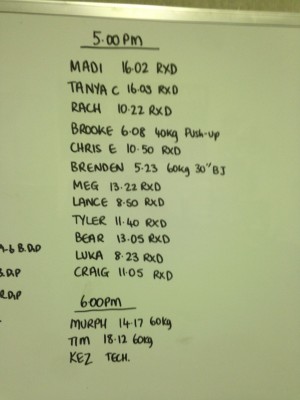 5.00pm
MADI 16.02 RXD
TANYA C 16.03 RXD
RACH 10.22 RXD
BROOKE 6.08 40kg Push-up
CHRIS E 10.50 RXD
BRENDEN 5.23 60kg 30" BJ
MEG 13.22 RXD
LANCE 8.50 RXD
TYLER 11.40 RXD
BEAR 13.05 RXD
LUKA 8.23 RXD
CRAIG 11.05 RXD
6.00pm
MURPH 14.17 60kg
TIM 18.12 60kg
KEZ TECH.